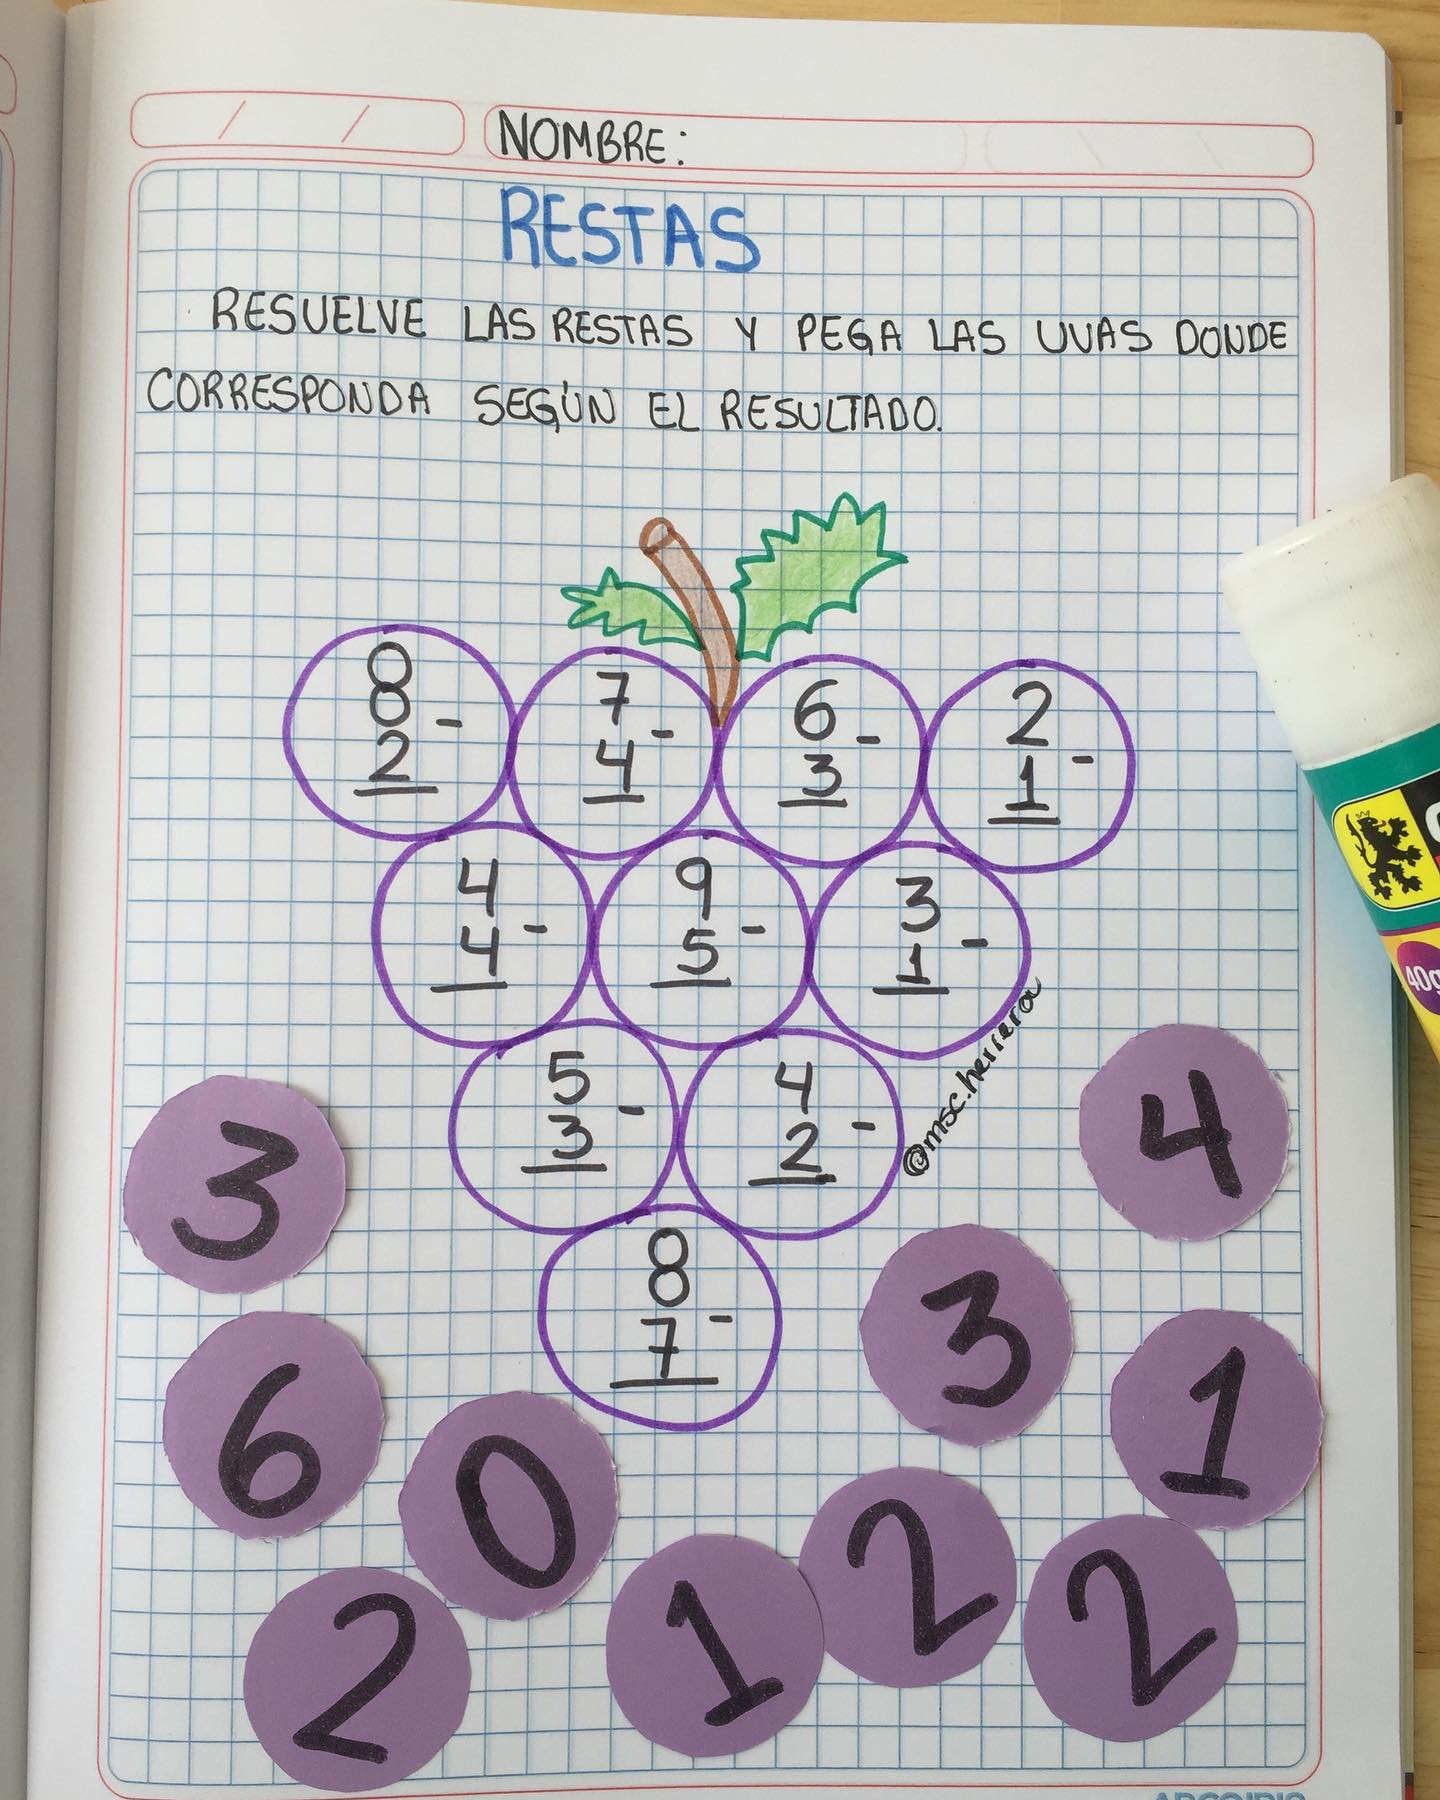 NOMBRE:
RESTAS
RESUELVE LAS RESTAS Y PEGA LAS UVAS DONDE
CORRESPONDA SEGÚN EL RESULTADO.
8
-
2
7
-
4
6
-
3
2
-
1
4
-
4
9
-
5
3
-
1
5
-
3
4
-
2
8
-
7
@msc.herrera
3
4
6
0
3
1
2
1
2
2
40g